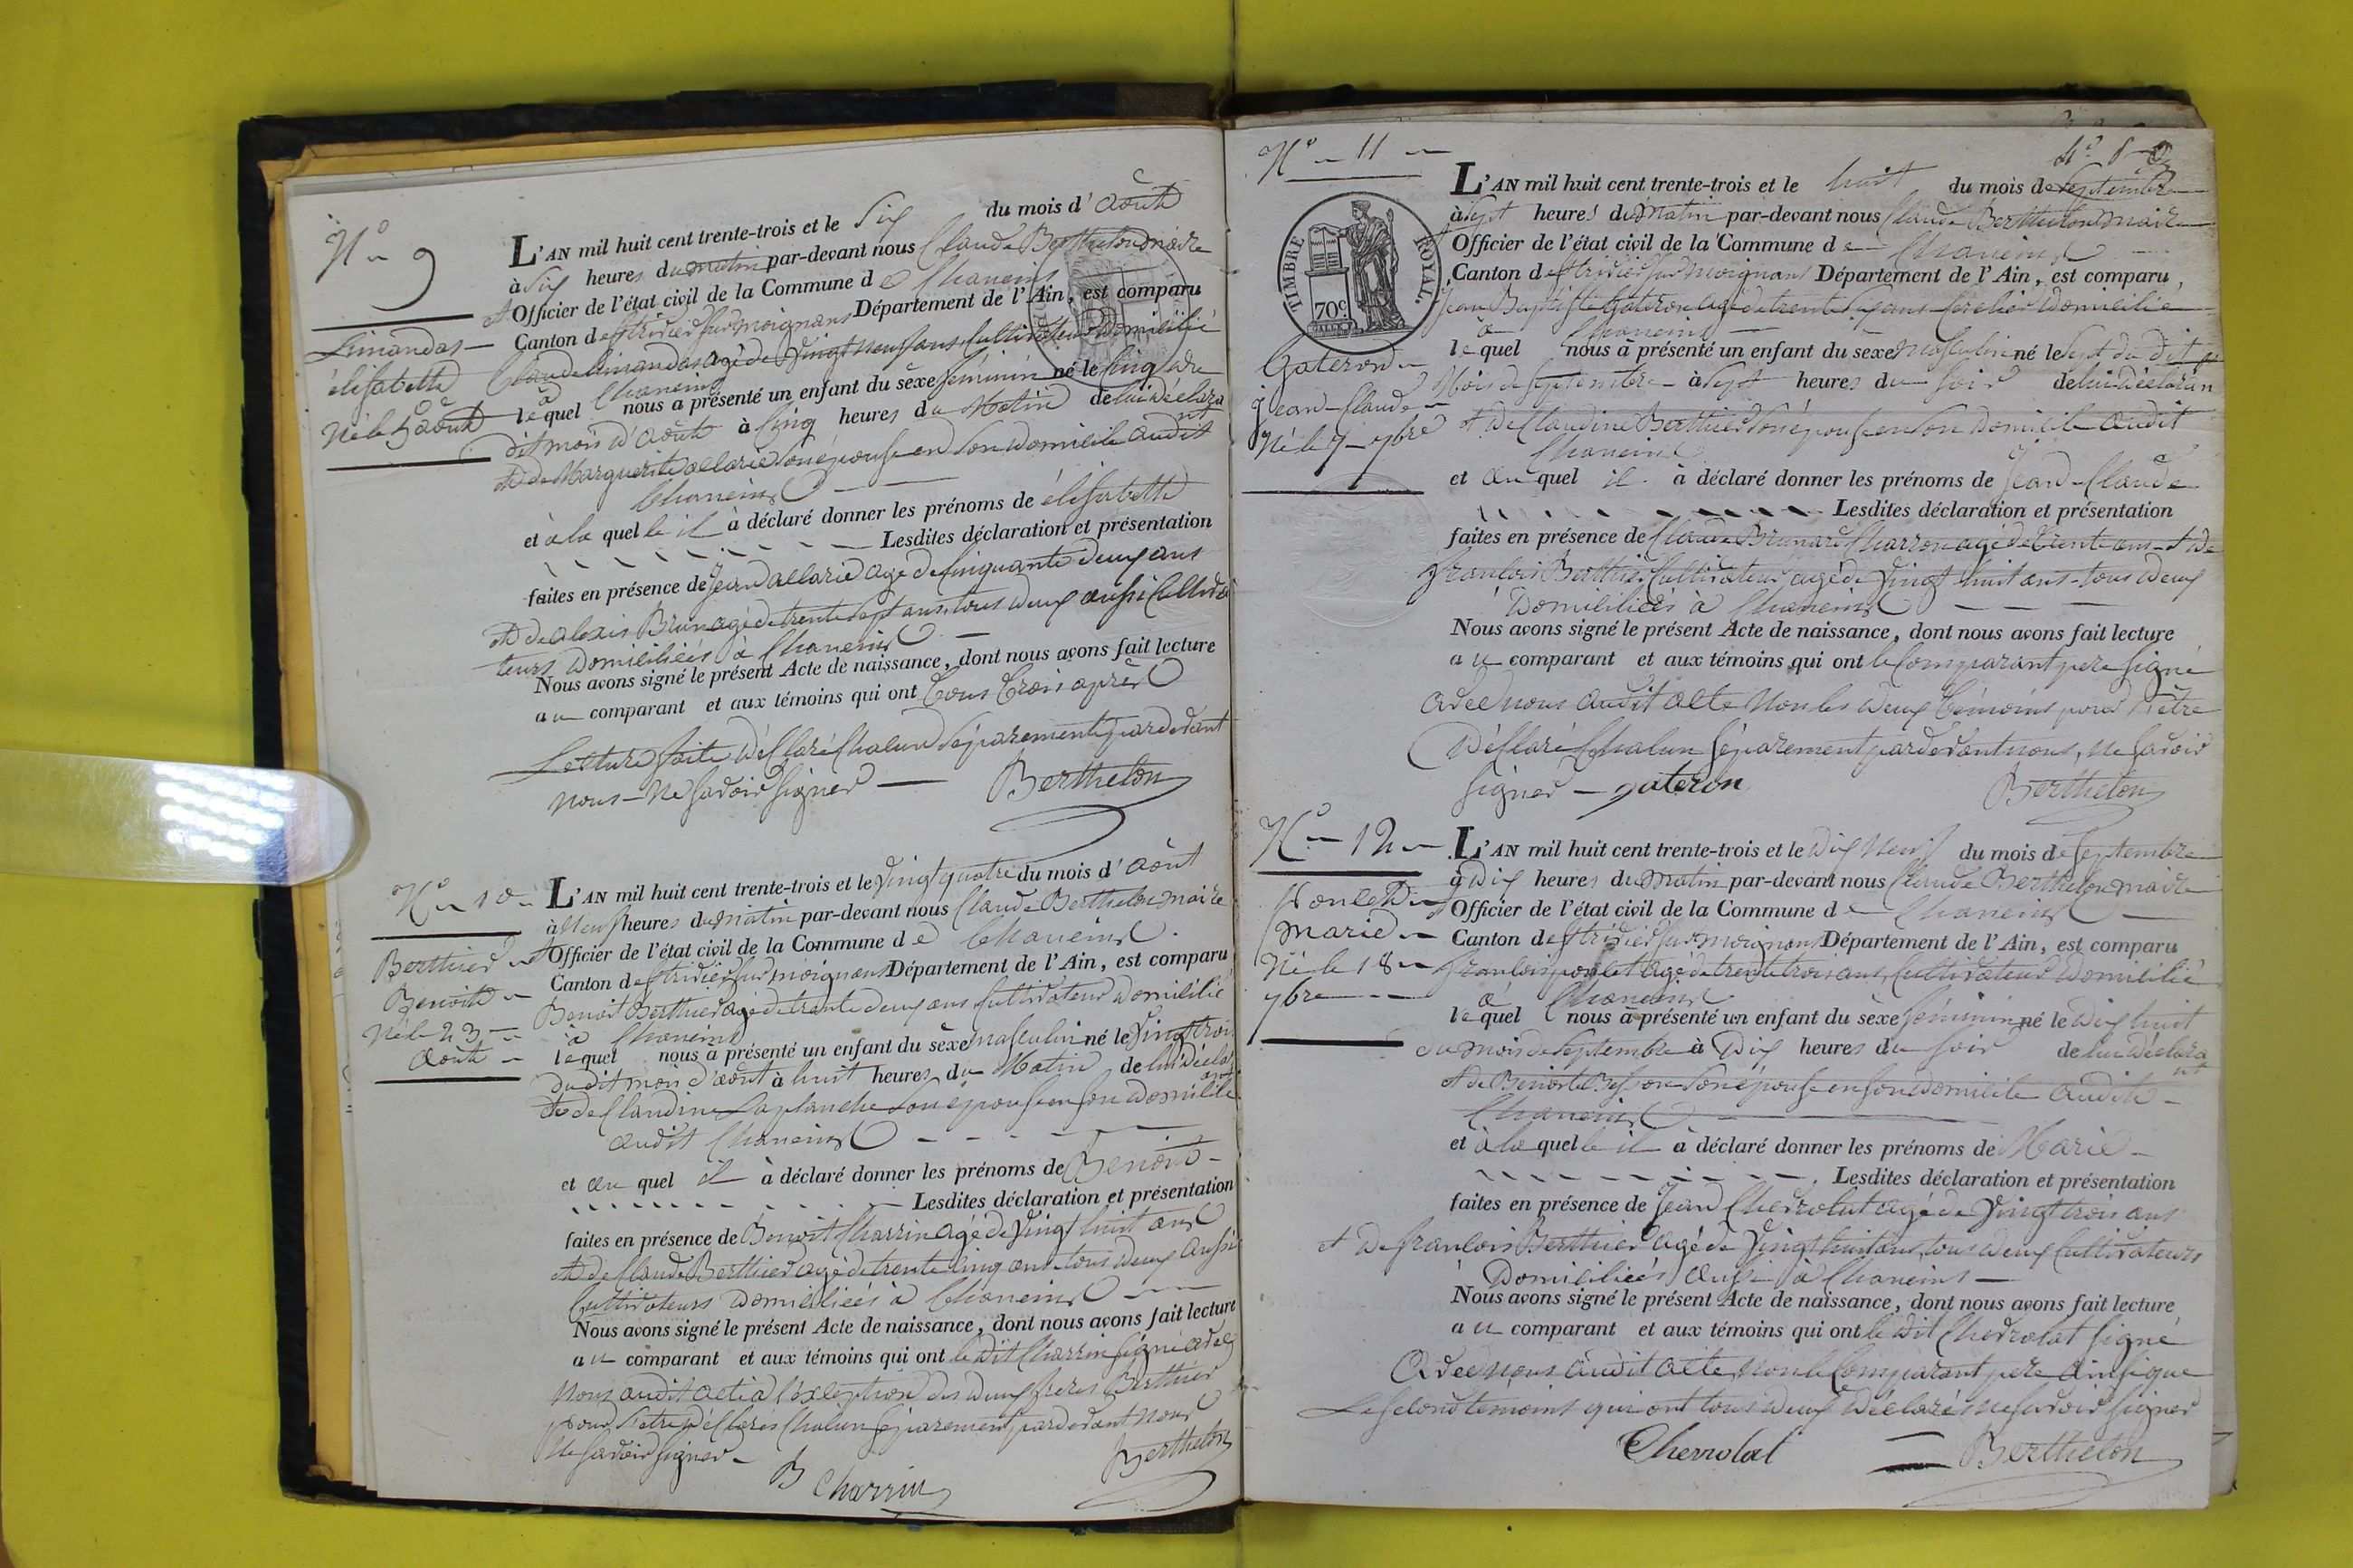 N° 9
Limandas
élisabette
Né le 5 août
L'AN mil huit cent trente-trois et le Six du mois d'août
à Six heures du matin par-devant nous Claude Berthelon maire
et Officier de l'état civil de la Commune de Chaneins
Canton de St trivier sur moignans Département de l'Ain, est comparu
Claude Limandas agé de Vingt neuf ans Cultivateur Domicilié
à Chaneins
lequel nous a présenté un enfant du sèxe feminin né le Cinq du
dit mois d'août à Cinq heures du Matin de lui déclara
nt
et de Marguerite allarie son épouse en Son Domicile audit
Chaneins
et à la quelle il à déclaré donner les prénoms de élisabette
Lesdites déclaration et présentation
faites en présence de Jean allarie agé de Cinquante deux ans
et de alexis Brun agé de trente Sept ans tous deux aussi Cultiva
teurs Domiciliés à Chaneins
Nous avons signé le présent Acte de naissance, dont nous avons fait lecture
au comparant et aux témoins qui ont tous trois après
Lecture faite déclaré Chacun Séparement pardevant
nous Ne Savoir Signer Berthelon
N° 10
Berthier
Benoite
Né le 23
août
L'AN mil huit cent trente-trois et le Vingt quatre du mois d'août
à Neuf heures du matin par-devant nous Claude Berthelon maire
et Officier de l'état civil de la Commune de Chaneins
Canton de St trivier sur moignans Département de l'Ain, est comparu
Benoit Berthier agé de trente deux ans Cultivateur Domicilié
à Chaneins
lequel nous a présenté un enfant du sèxe masculin né le Vingt trois
du dit mois d'août à huit heures du Matin de lui déclar
ant
et de Claudine Laplanche Son épouse en Son Domicile
audit Chaneins
et au quel il à déclaré donner les prénoms de Benoit
Lesdites déclaration et présentation
faites en présence de Benoit Charrin agé de Vingt huit ans
et de Claude Berthier agé de trente Cinq ans tous deux aussi
Cultivateurs Domiciliés à Chaneins
Nous avons signé le présent Acte de naissance, dont nous avons fait lecture
au comparant et aux témoins qui ont le dit Charrin Signé avec
Nous audit acte à l'exception des deux freres Berthier
pour S'etre déclarés Chacun Séparement pardevant Nous
Ne Savoir Signer
B Charrin Berthelon
N° 11
TIMBRE ROYAL.
70c.
Gateron
Jean Claude
Né le 7 7bre
L'AN mil huit cent trente-trois et le huit du mois de Septembre
à Sept heures du Matin par-devant nous Claude Berthelon maire
Officier de l'état civil de la Commune de Chaneins
Canton de St trivier sur moignans Département de l'Ain, est comparu,
Jean Baptiste Gateron agé de trente Six ans Domicilié
à Chaneins
lequel nous à présenté un enfant du sèxe Masculin né le Sept du dit
Mois de Septembre à Sept heures du Soir de lui déclaran
t et De Claudine Berthier Son épouse en Son Domicile audit
Chaneins
et au quel il à déclaré donner les prénoms de Jean Claude
Lesdites déclaration et présentation
faites en présence de Claude Brunard Charron agé de trente ans et de
francois Berthier Cultivateur agé de Vingt huit ans tous deux
Domiciliés à Chaneins
Nous avons signé le présent Acte de naissance, dont nous avons fait lecture
au comparant et aux témoins qui ont le Comparant pere Signé
avec nous audit acte Non les deux témoins pour S'être
Déclaré Chacun Séparement pardevant nous, Ne Savoir
Signer gateron Berthelon
N° 12
Poulet
Marie
Né le 18
7bre
L'AN mil huit cent trente-trois et le Dix Neuf du mois de Septembre
à Dix heures du Matin par-devant nous Claude Berthelon maire
Officier de l'état civil de la Commune de Chaneins
Canton de St trivier sur moignans Département de l'Ain, est comparu
francois poulet agé de trente trois ans Cultivateur Domicilié
à Chaneins
lequel nous à présenté un enfant du sèxe féminin né le Dix huit
du mois de Septembre à Dix heures du Soir de lui déclara
nt
et de Benoite Besson Son épouse en Son Domicile audit
Chaneins
et à la quelle il à déclaré donner les prénoms de Marie
Lesdites déclaration et présentation
faites en présence de Jean Chevrolat agé de Vingt trois ans
et De francois Berthier agé de Vingt huit ans, tous deux Cultivateurs
Domiciliés aussi à Chaneins
Nous avons signé le présent Acte de naissance, dont nous avons fait lecture
au comparant et aux témoins qui ont le dit Chevrolat Signé
avec nous audit acte Non le Comparant pere ainsi que
Le Second témoins qui ont tous deux Déclaré ne Savoir Signer
Chevrolat Berthelon